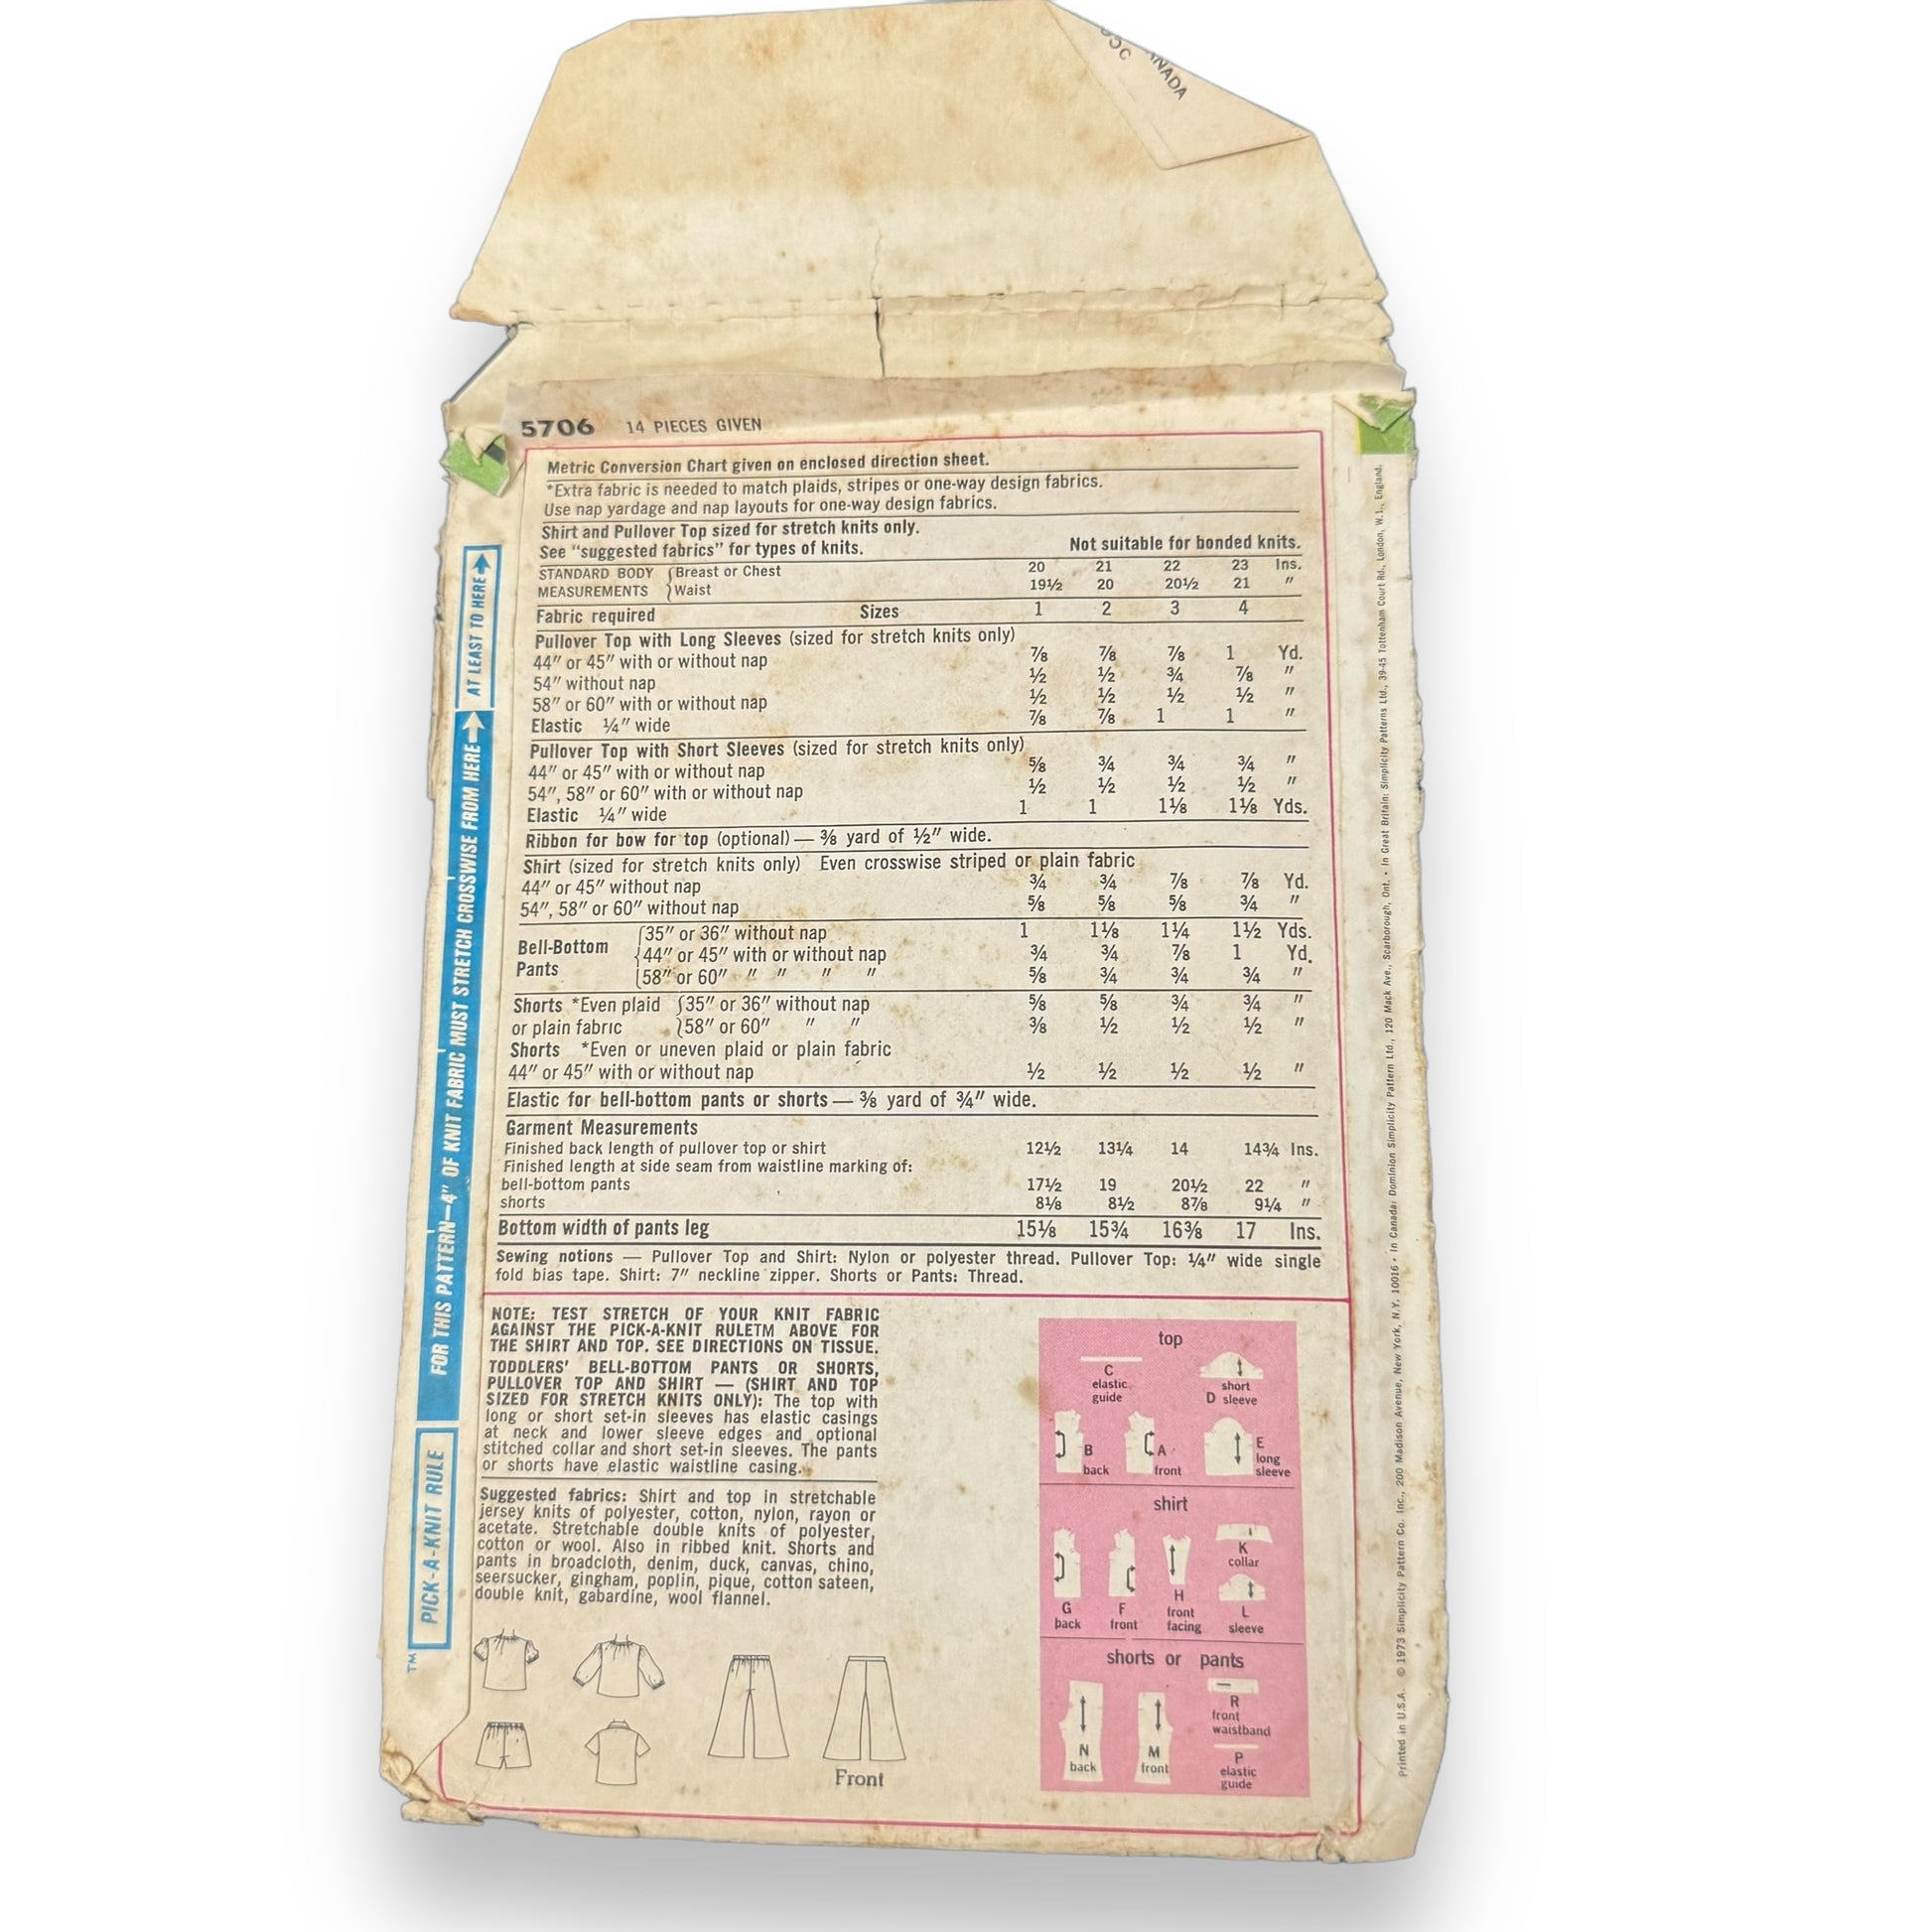 CANADA
5706 14 PIECES GIVEN
Metric Conversion Chart given on enclosed direction sheet.
*Extra fabric is needed to match plaids, stripes or one-way design fabrics.
Use nap yardage and nap layouts for one-way design fabrics.
Shirt and Pullover Top sized for stretch knits only.
See "suggested fabrics" for types of knits. Not suitable for bonded knits.
STANDARD BODY { Breast or Chest 20 21 22 23 Ins.
MEASUREMENTS } Waist 19½ 20 20½ 21 "
Fabric required Sizes 1 2 3 4
Pullover Top with Long Sleeves (sized for stretch knits only)
44" or 45" with or without nap ⅞ ⅞ ⅞ 1 Yd.
54" without nap ½ ½ ¾ ⅞ "
58" or 60" with or without nap ½ ½ ½ ½ "
Elastic ¼" wide ⅞ ⅞ 1 1 "
Pullover Top with Short Sleeves (sized for stretch knits only)
44" or 45" with or without nap ⅝ ¾ ¾ ¾ "
54", 58" or 60" with or without nap ½ ½ ½ ½ "
Elastic ¼" wide 1 1 1⅛ 1⅛ Yds.
Ribbon for bow for top (optional) — ⅜ yard of ½" wide.
Shirt (sized for stretch knits only) Even crosswise striped or plain fabric
44" or 45" without nap ¾ ¾ ⅞ ⅞ Yd.
54", 58" or 60" without nap ⅝ ⅝ ⅝ ¾ "
Bell-Bottom Pants { 35" or 36" without nap 1 1⅛ 1¼ 1½ Yds.
44" or 45" with or without nap ¾ ¾ ⅞ 1 Yd.
58" or 60" " " " " ⅝ ¾ ¾ ¾ "
Shorts *Even plaid { 35" or 36" without nap ⅝ ⅝ ¾ ¾ "
or plain fabric 58" or 60" " " ⅜ ½ ½ ½ "
Shorts *Even or uneven plaid or plain fabric
44" or 45" with or without nap ½ ½ ½ ½ "
Elastic for bell-bottom pants or shorts — ⅜ yard of ¾" wide.
Garment Measurements
Finished back length of pullover top or shirt 12½ 13¼ 14 14¾ Ins.
Finished length at side seam from waistline marking of:
bell-bottom pants 17½ 19 20½ 22 "
shorts 8⅛ 8½ 8⅞ 9¼ "
Bottom width of pants leg 15⅛ 15¾ 16⅜ 17 Ins.
Sewing notions — Pullover Top and Shirt: Nylon or polyester thread. Pullover Top: ¼" wide single
fold bias tape. Shirt: 7" neckline zipper. Shorts or Pants: Thread.
NOTE: TEST STRETCH OF YOUR KNIT FABRIC
AGAINST THE PICK-A-KNIT RULETM ABOVE FOR
THE SHIRT AND TOP. SEE DIRECTIONS ON TISSUE.
TODDLERS' BELL-BOTTOM PANTS OR SHORTS,
PULLOVER TOP AND SHIRT — (SHIRT AND TOP
SIZED FOR STRETCH KNITS ONLY): The top with
long or short set-in sleeves has elastic casings
at neck and lower sleeve edges and optional
stitched collar and short set-in sleeves. The pants
or shorts have elastic waistline casing.
Suggested fabrics: Shirt and top in stretchable
jersey knits of polyester, cotton, nylon, rayon or
acetate. Stretchable double knits of polyester,
cotton or wool. Also in ribbed knit. Shorts and
pants in broadcloth, denim, duck, canvas, chino,
seersucker, gingham, poplin, pique, cotton sateen,
double knit, gabardine, wool flannel.
Front
top
C
elastic
guide
short
D sleeve
B
back
A
front
E
long
sleeve
shirt
G
back
F
front
H
front
facing
K
collar
L
sleeve
shorts or pants
N
back
M
front
R
front
waistband
P
elastic
guide
PICK-A-KNIT RULE
TM
FOR THIS PATTERN—4" OF KNIT FABRIC MUST STRETCH CROSSWISE FROM HERE
AT LEAST TO HERE
Printed in U.S.A. © 1973 Simplicity Pattern Co. Inc., 200 Madison Avenue, New York, N.Y. 10016 • In Canada: Dominion Simplicity Pattern Ltd., 120 Mack Ave., Scarborough, Ont. • In Great Britain: Simplicity Patterns Ltd., 39-45 Tottenham Court Rd., London, W.1., England.